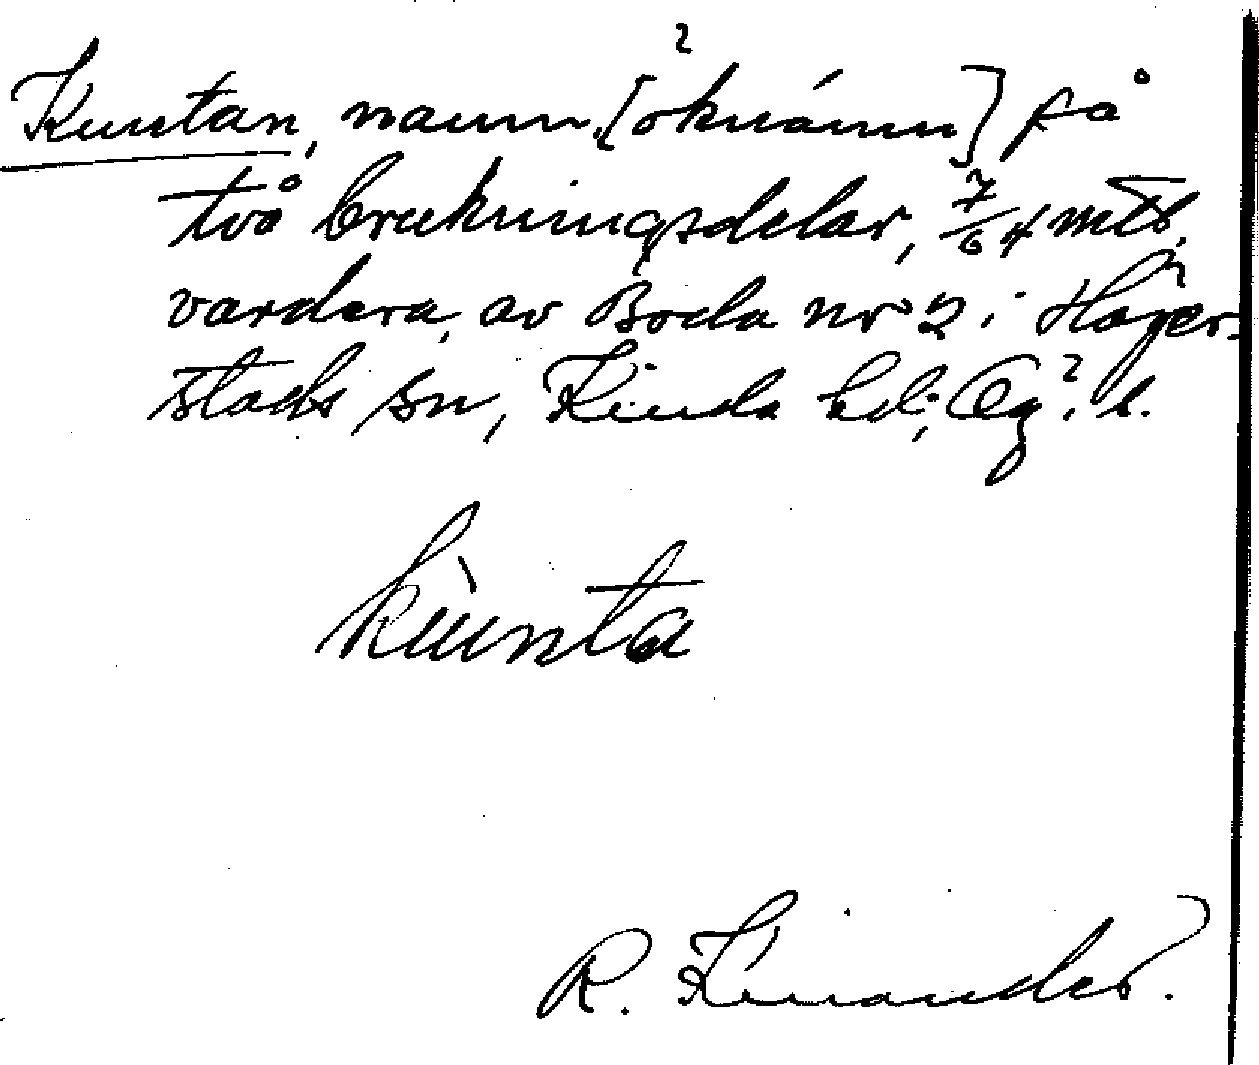 Kuntan, namn [öknámn] på
två brukningsdelar, 7/64 mtl.
vardera, av Boda nr 2 i Häger-
stads sn, Kinda hd; Ög. l.
kùnta
R. Kinander.